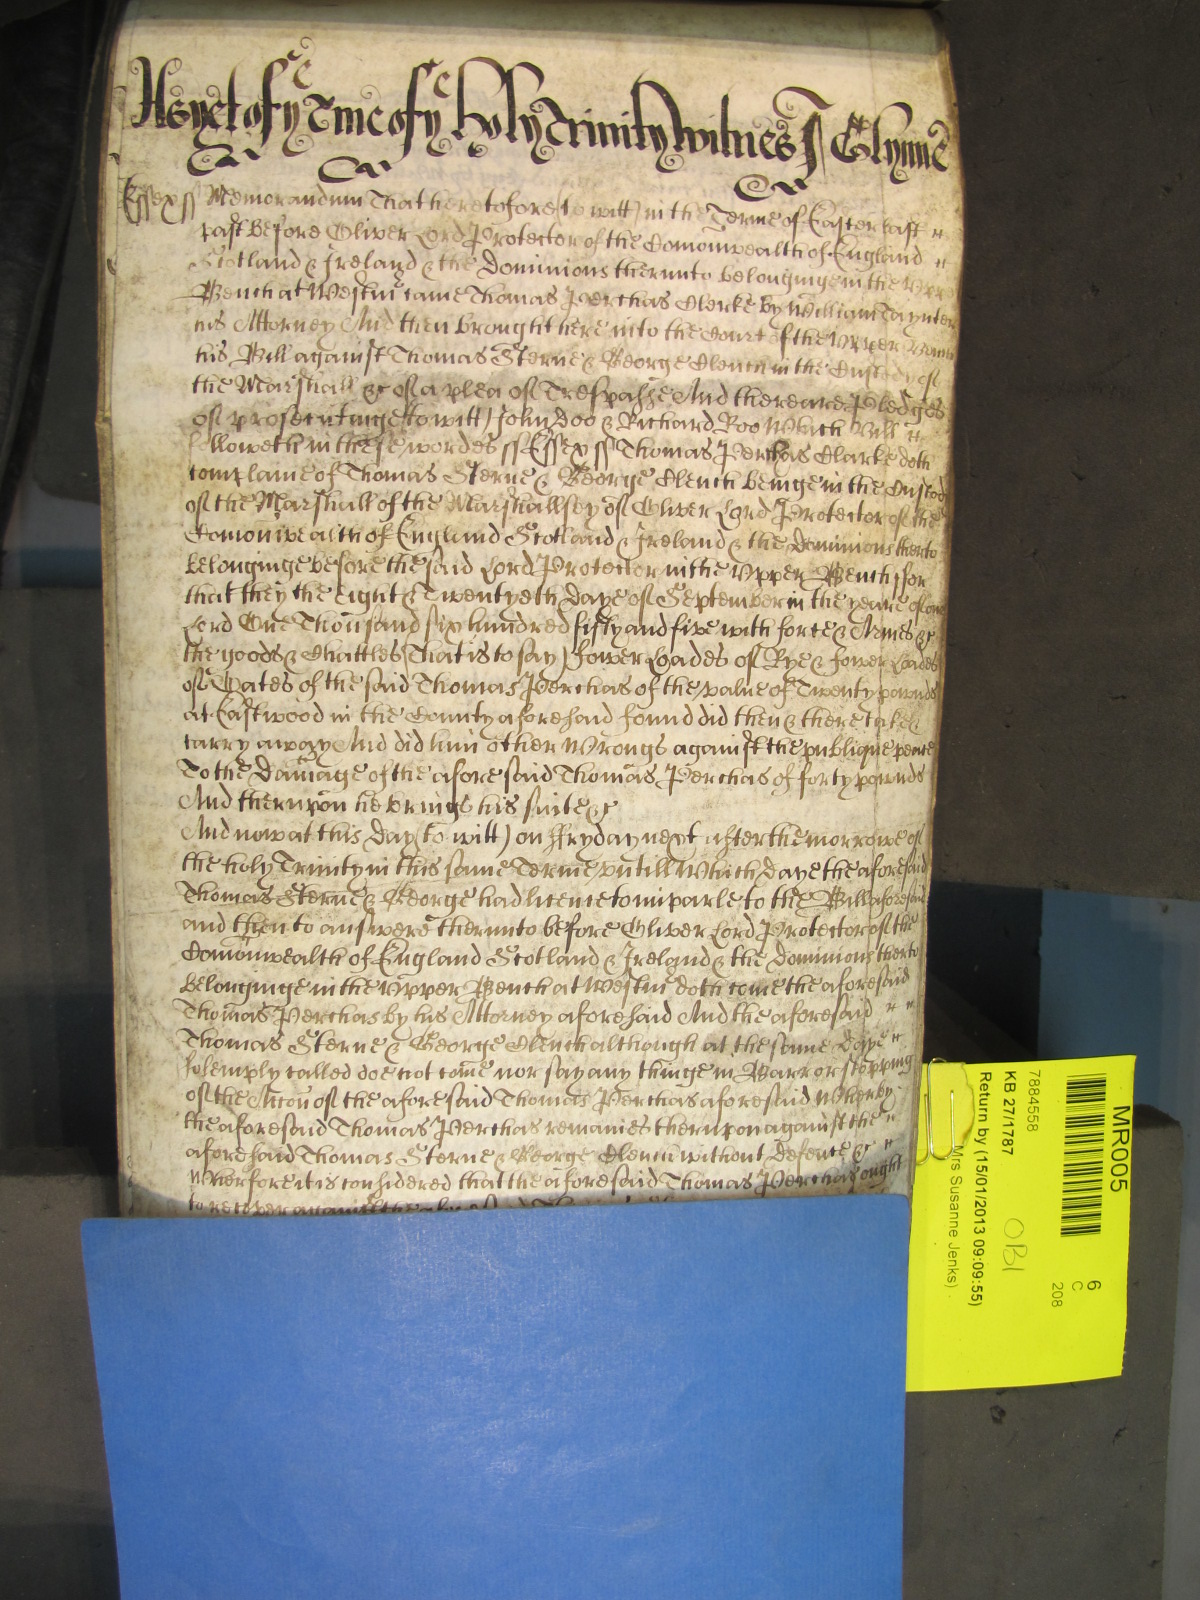 As yet of ye Tme of ye holy Trinity Witnes J Glynne
Essex ss Memorandum That heretofore (to witt) in the Terme of Easter last
past before Oliver Lord Protector of the Comonwealth of England
Scotland & Ireland & the Dominions therunto belonginge in the Upper
Bench at Westmr came Thomas Perchas Clerke by William Taynter
his Attorney And then brought here into the Court of the Upper Bench
his Bill against Thomas Sterne & George Clench in the Custody of
the Marshall &c of a plea of Trespasse And there are Pledges
of prosecutinge (to witt) John Doo & Richard Roo Which Bill
followeth in these wordes ss Essex ss Thomas Perchas Clarke doth
complaine of Thomas Sterne & George Clench beinge in the Custody
of the Marshall of the Marshallsey of Oliver Lord Protector of the
Comonwealth of England Scotland & Ireland & the Dominions therto
belonginge before the said Lord Protector in the Upper Bench for
that they the eight & Twentyeth Daye of September in the yeare of our
Lord One Thousand six hundred fifty and five with force & Armes &c
the goods & Chattles (That is to say) fower Loades of Rye & fower Loades
of Oates of the said Thomas Perchas of the value of Twenty pownds
at Eastwood in the County aforesaid found did then & there take &
carry away And did him other Wrongs against the publique peace
To the Damage of the aforesaid Thomas Perchas of forty pownds
And therupon he brings his suite &c
And now at this Day (to witt) on ffryday next after the morrowe of
the holy Trinity in this same Terme untill Which Daye the aforesaid
Thomas Sterne & George had licence to imparle to the Bill aforesaid
and then to answere therunto before Oliver Lord Protector of the
Comonwealth of England Scotland & Ireland & the Dominions therto
belonginge in the Upper Bench at Westmr doth come the aforesaid
Thomas Perchas by his Attorney aforesaid And the aforesaid
Thomas Sterne & George Clench although at the same Daye
solemply called doe not come nor say any thinge in Barr or stopping
of the Accon of the aforesaid Thomas Perchas aforesaid Wherby
the aforesaid Thomas Perchas remaines therupon against the
aforesaid Thomas Sterne & George Clench without Defence &c
Wherfore it is considered that the aforesaid Thomas Perchas ought
to recover against the
MR005
6
C
208
7884558
KB 27/1787
OBI
Return by (15/01/2013 09:09:55)
Mrs Susanne Jenks)